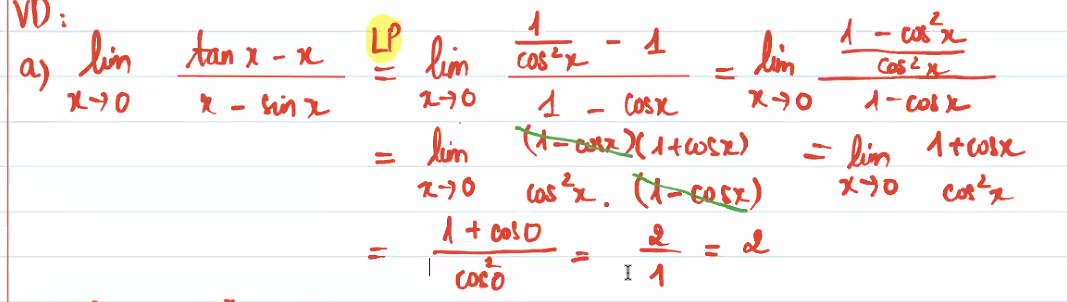 VD:
a) lim x→0 (tan x - x)/(x - sin x) LP= lim x→0 (1/cos²x - 1)/(1 - cosx) = lim x→0 ((1 - cos²x)/cos²x)/(1 - cosx)
= lim x→0 ((1 - cosx)(1 + cosx))/(cos²x . (1 - cosx)) = lim x→0 (1 + cosx)/(cos²x)
= (1 + cos0)/(cos²0) = 2/1 = 2